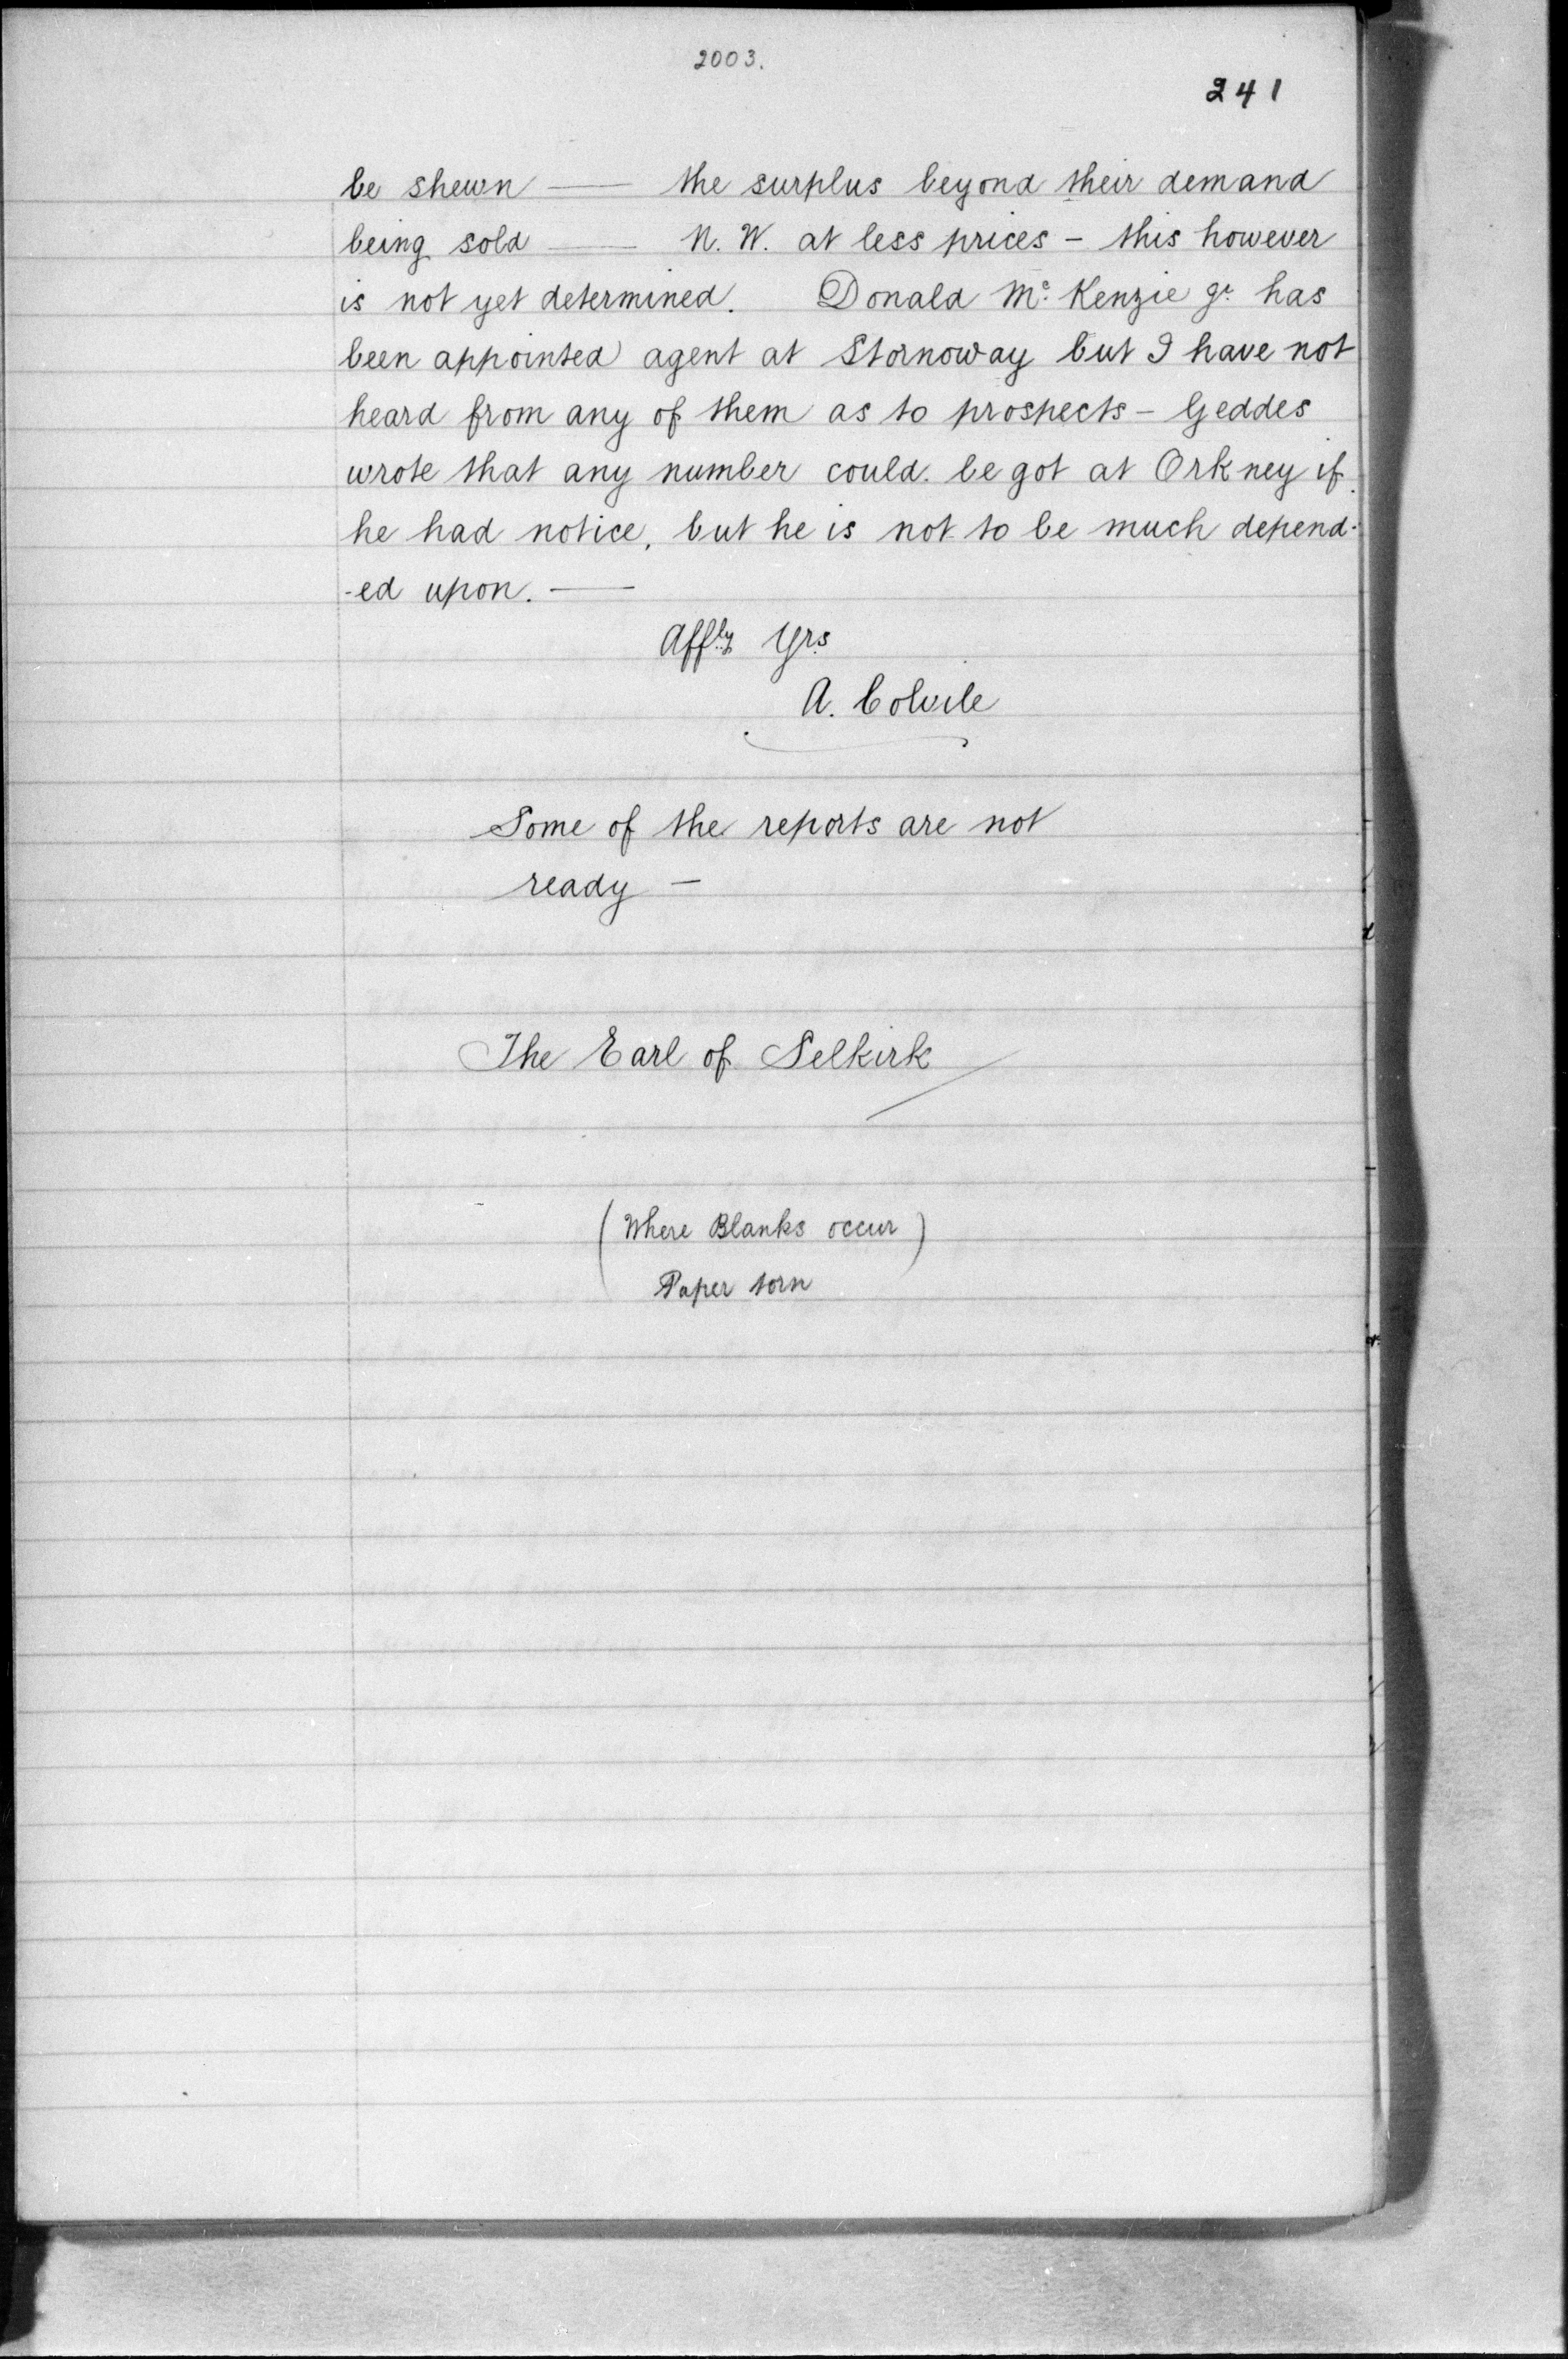 2003.
241
be shewn —— the surplus beyond their demand
being sold —— N. W. at less prices – this however
is not yet determined. Donald Mc. Kenzie Jr. has
been appointed agent at Stornoway but I have not
heard from any of them as to prospects – Geddes
wrote that any number could be got at Orkney if
he had notice, but he is not to be much depend-
-ed upon. ——
Affly Yrs
A. Colvile
Some of the reports are not
ready –
The Earl of Selkirk
(Where Blanks occur)
Paper torn